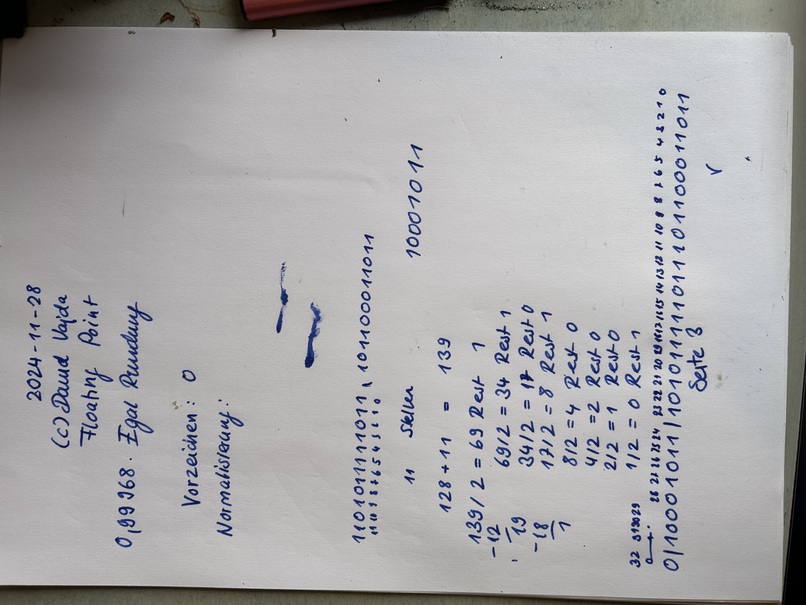 2024-11-28
(c) David Vajda
Floating Point
0,99968. Egal Rundung
Vorzeichen: 0
Normalisierung:
1101011111011, 101100011011
11 10 9 8 7 6 5 4 3 2 1 0
11 Stellen 10001011
128 + 11 = 139
139/2 = 69 Rest 1
-12 69/2 = 34 Rest 1
19 34/2 = 17 Rest 0
-18 17/2 = 8 Rest 1
1 8/2 = 4 Rest 0
4/2 = 2 Rest 0
2/2 = 1 Rest 0
1/2 = 0 Rest 1
32 31 30 29 28 27 26 25 24 23 22 21 20 19 18 17 16 15 14 13 12 11 10 9 8 7 6 5 4 3 2 1 0
0|10001011|101011111011101100011011
Seite 3